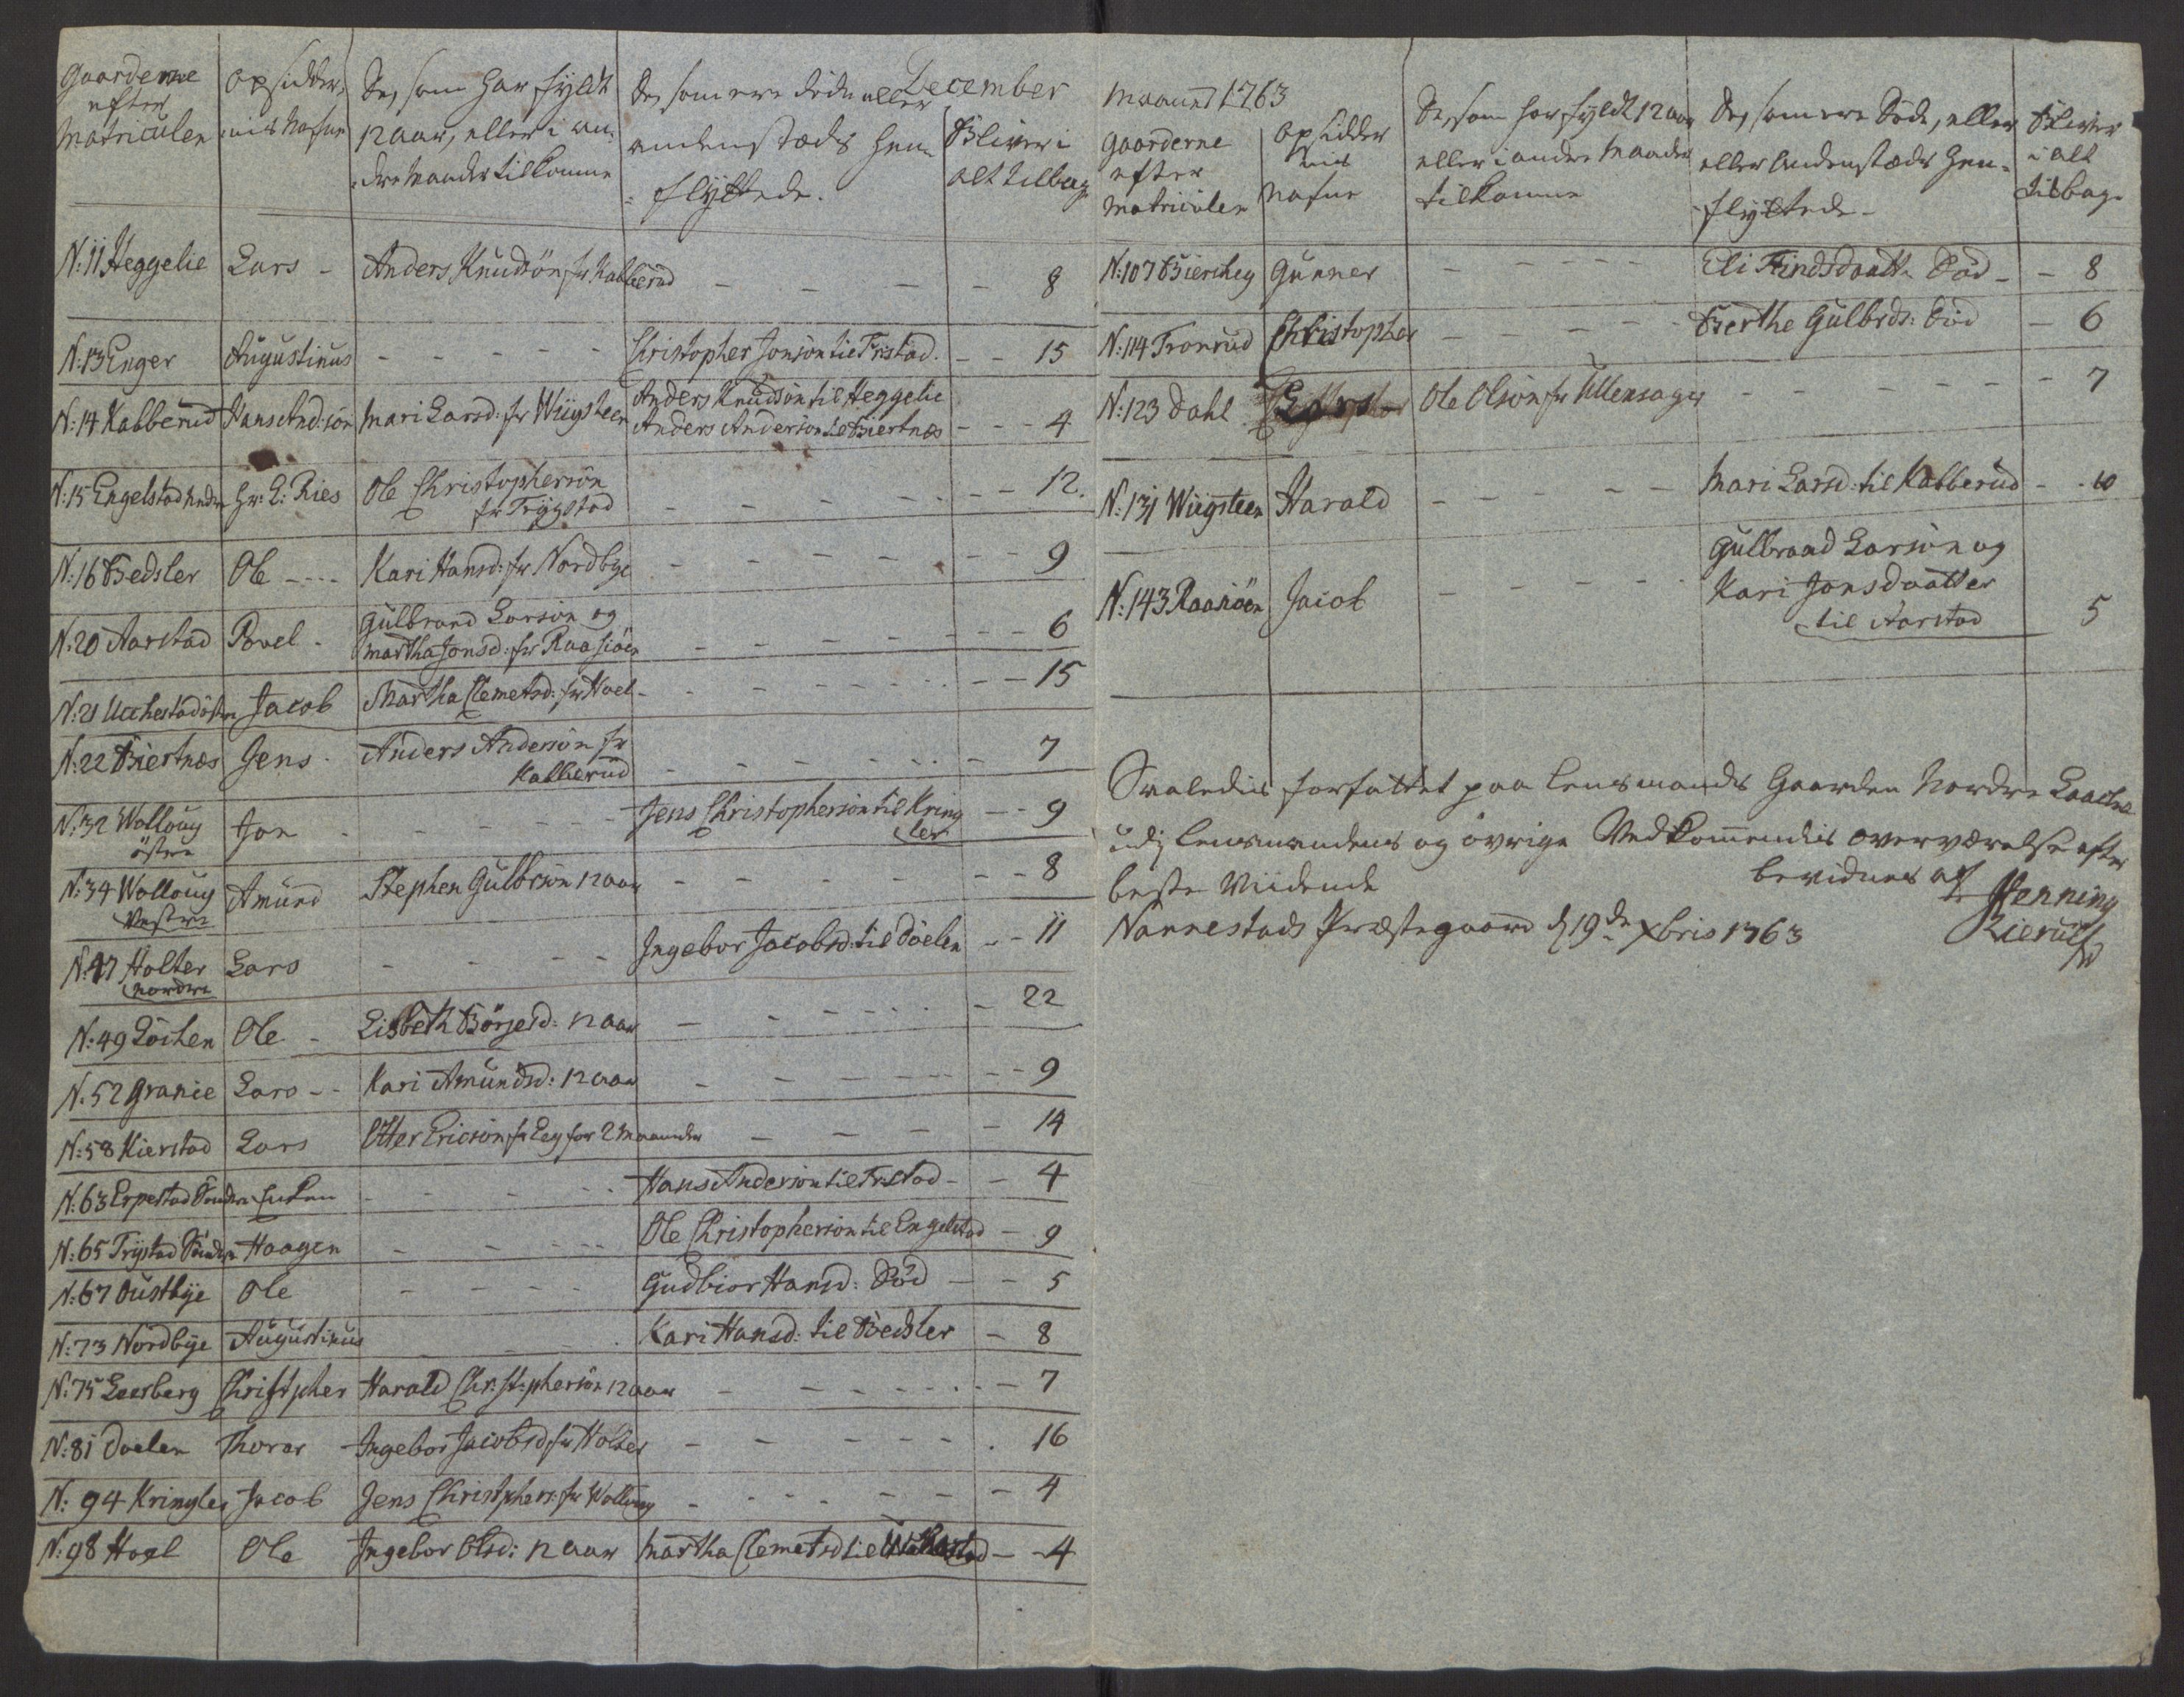 December
Gaarderne efter Matriculen | Opsiddernis Nafne | De, som har fyldt 12 aar, eller i andre Maader tilkomne | De som ere döde eller andenstæds henflyttede. | Bliver i alt tilbag
N: 11 Heggelie | Lars - | Anders Knudsön fr Kabberud | - - - | 8
N: 13 Enger | Augustinus | - - - - - | Christopher Jonsön til Fristad. | 15
N: 14 Kabberud | Hans And:sön | Mari Larsd: fr Wiigsteen | Anders Knudsön til Heggelie
Anders Andersön til Biertnæs | 4
N: 15 Engelstad | Hr: L: Ries | Ole Christophersön
fr Trygstad | - - - | 12.
N: 16 Bedsler | Ole - - - - | Kari Hansd: fr Nordbye | - - - - | 9
N: 20 Aarstad | Povel - | Gulbrand Larsön og
Martha Jonsd: fr Raasiöen | - - - | 6
N: 21 | Jacob | Martha Clemetsd: fr Hoel | - - - | 15
N: 22 Biertnæs | Jens - | Anders Andersön fr
Kabberud | - - - | 7
N: 32 Wolloug
östre | Jon | - - - - | Jens Christophersön til Kringler | 9
N: 34 Wolloug
Vestre | Amund | Stephen Gulbrsön 12 aar | - - - - | 8
N: 47 Holter
Nordre | Lars | - - - - | Ingebor Jacobsd: til Döelen | 11
N: 49 Löchen | Ole - | Lisbeth Börgesd: 12 aar | - - - | 22
N: 52 Granie | Lars - - | Kari Amundsd: 12 aar | - - - | 9
N: 58 Kierstad | Lars | Otter Ericsön fr Eeg for 2 Maaneder | - - - | 14
N: 63 Erpestad Sondre | Enken | - - - | Hans Andersön til Fristad - | 4
N: 65 Trystad Söndre | Haagen | - - - | Ole Christophersön til Engelstad | 9
N: 67 Oustbye | Ole | - - - - | Gudbior Hansd: Död | 5
N: 73 Nordbye | Augustinus | - - - | Kari Hansd: til Bedsler | 8
N: 75 Leerberg | Christpher | Harald Christphersön 12 aar | - - - | 7
N: 81 Doelen | Thorer | Ingebor Jacobsd fr Holter | - - - - | 16
N: 94 Kringler | Jacob | Jens Christphers: fr Wolloug | - - - | 4
N: 98 Hoel | Ole | Ingebor Olsd: 12 aar | Martha Clemetsd til | 4
Maaned 1763
Gaarderne efter Matriculen | Opsiddernis Nafne | De, som har fyldt 12 aar eller i andre Maader tilkomne | De, som ere Döde, eller eller Andenstæds henflyttede - | Bliver i alt tilbage
N: 107 Bierchey | Gunner | - - - - | Eli Findsdaatt: Död - | 8
N: 114 Tronrud | Christopher | - - - - | Berthe Gulbrds: Död | 6
N: 123 Dahl | Lars | Ole Olsön fr Ullensager | - - - - | 7
N: 131 Wiigsteen | Harald | - - - - - | Mari Larsd: til Kabberud | 10
N: 143 Raasiöen | Jacob | - - - - | Gulbrand Larsön og
Kari Jonsdaatter
til Aarstad | 5
Saaledis forfattet paa Lensmands Gaarden Nordre
udj Lensmandens og övrige Vedkommendis overværelse efter
beste Viidende bevidnes af Henning
Nannestads Præstegaard d 19de Xbris 1763 Kierulf